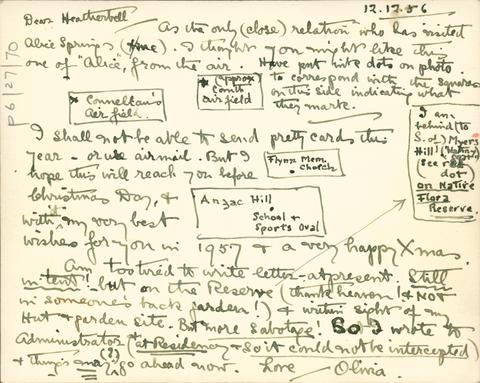 12.12.56
Dear Heatherbell
As the only (close) "relation" who has visited
Alice Springs (true). I thought you might like this
one of "Alice", from the air. Have put ink dots on photo
to correspond with the squares
on this side indicating what
they mark.
x Connellan's
Air field.
x Approx
Comth
airfield
I am
behind (to
S. of) Myers
Hill!
(see red
dot)
on Native
Flora
Reserve.
I shall not be able to send pretty cards this
year - or use airmail. But I
hope this will reach you before
Flynn Mem.
Church
Christmas Day, &
with my very best
wishes for you in 1957 & a very happy Xmas.
Anzac Hill
School &
Sports Oval
Am too tired to write letter - at present. Still
in tent! - but on the Reserve (thank heaven! & NOT
in someone's back garden!) & within sight of my
Hut & garden site. But more sabotage! So I wrote to
Administrator (at Residency & so it could not be intercepted)
& things may (?) go ahead now. Love Olivia.
P6/27/70